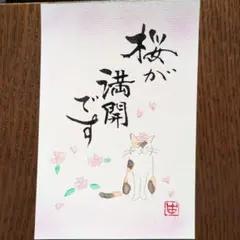 桜が
満開
です